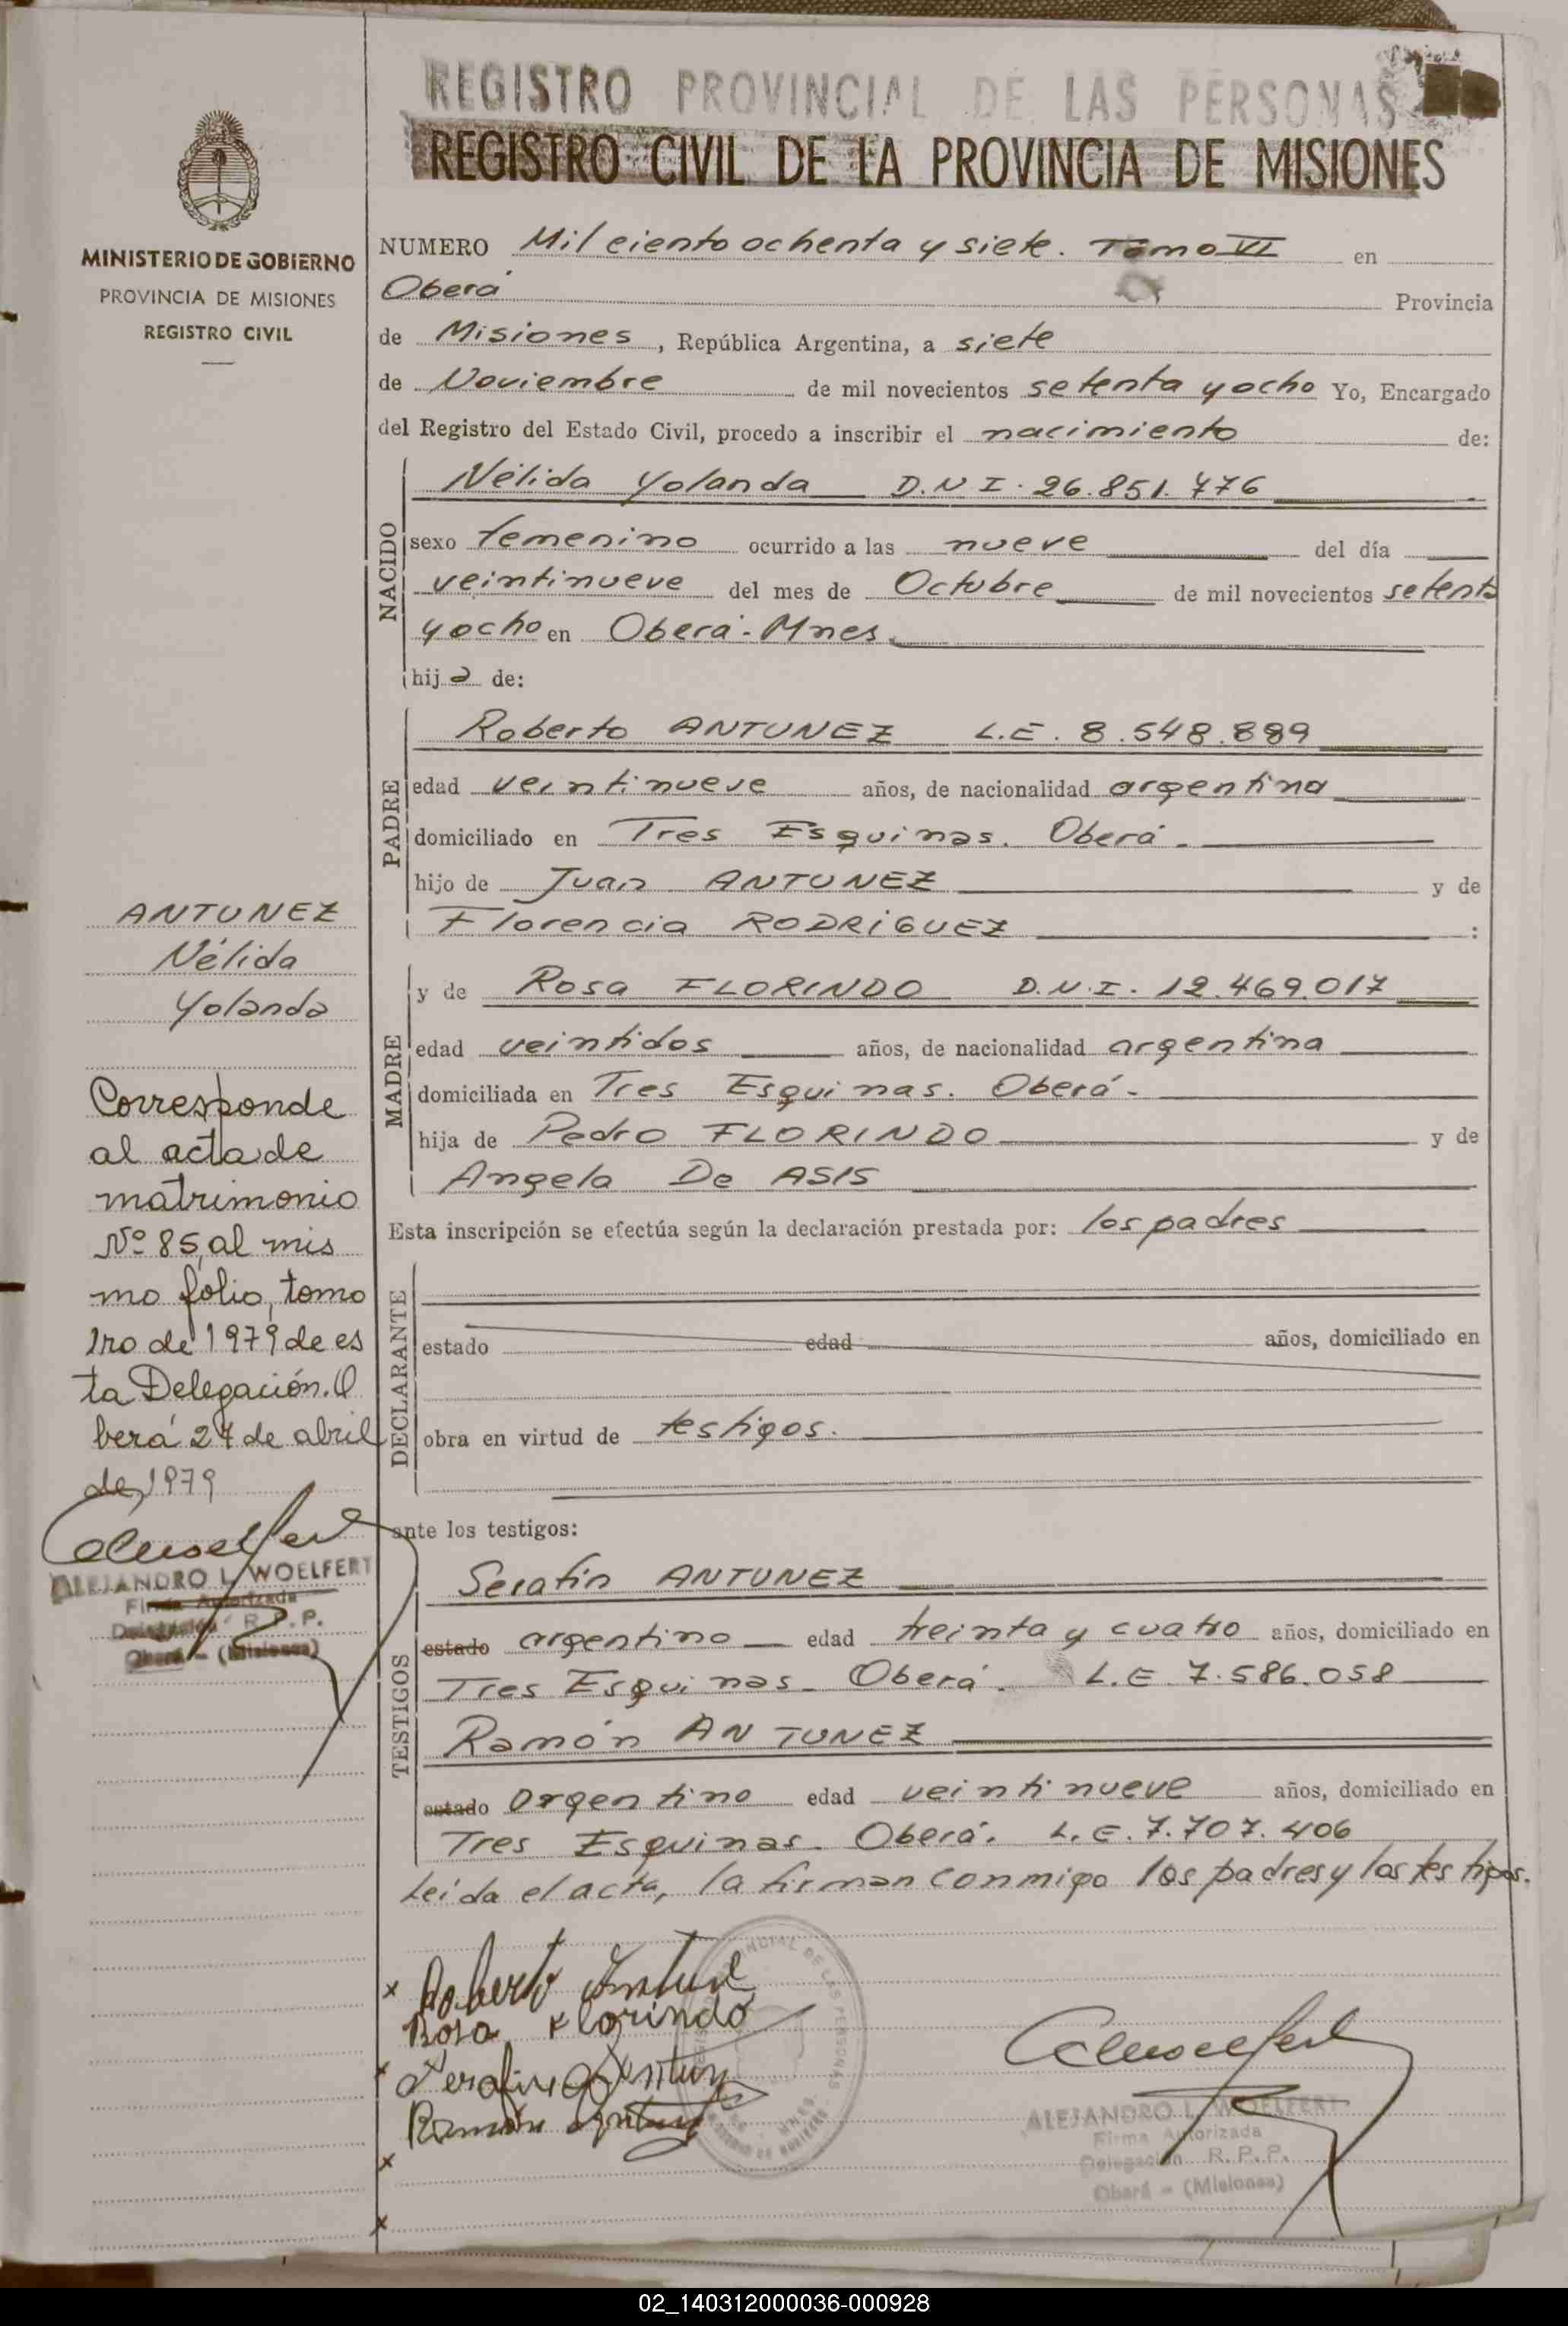 REGISTRO PROVINCIAL DE LAS PERSONAS
REGISTRO CIVIL DE LA PROVINCIA DE MISIONES
MINISTERIO DE GOBIERNO
PROVINCIA DE MISIONES
REGISTRO CIVIL
NUMERO Mil ciento ochenta y siete. Tomo VI en
Oberá Provincia
de Misiones, República Argentina, a siete
de Noviembre de mil novecientos setenta y ocho Yo, Encargado
del Registro del Estado Civil, procedo a inscribir el nacimiento de:
NACIDO
Nélida Yolanda D.N.I. 26.851.776
sexo femenino ocurrido a las nueve del día
veintinueve del mes de Octubre de mil novecientos setenta
y ocho en Oberá-Mnes.
hija de:
PADRE
Roberto ANTUNEZ L.E. 8.548.889
edad veintinueve años, de nacionalidad argentina
domiciliado en Tres Esquinas. Oberá.
hijo de Juan ANTUNEZ y de
Florencia RODRIGUEZ :
MADRE
y de Rosa FLORINDO D.N.I. 12.469.017
edad veintidos años, de nacionalidad argentina
domiciliada en Tres Esquinas. Oberá-
hija de Pedro FLORINDO y de
Angela De ASIS
Esta inscripción se efectúa según la declaración prestada por: los padres
DECLARANTE
estado edad años, domiciliado en
obra en virtud de testigos.
ante los testigos:
TESTIGOS
Serafin ANTUNEZ
estado argentino edad treinta y cuatro años, domiciliado en
Tres Esquinas. Oberá. L.E 7.586.058
Ramón ANTUNEZ
estado argentino edad veintinueve años, domiciliado en
Tres Esquinas. Oberá. L.E. 7.707.406
Leída el acta, la firman conmigo los padres y los testigos.
ANTUNEZ
Nélida
Yolanda
Corresponde
al acta de
matrimonio
Nº 85, al mis
mo folio, tomo
1ro de 1979 de es
ta Delegación. O
berá 27 de abril
de 1979
ALEJANDRO L. WOELFERT
Firma Autorizada
Delegación R.P.P.
Oberá - (Misiones)
Roberto Antunez
Rosa Florindo
Serafin Antunez
Ramón Antunez
ALEJANDRO L. WOELFERT
Firma Autorizada
Delegación R.P.P.
Oberá - (Misiones)
02_140312000036-000928